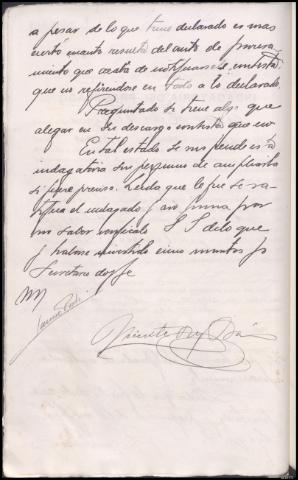 a pesar de lo que tiene declarado es mas
cierto cuanto resulta del auto de procesa
miento que acaba de notificarsele contesta
que no refiriendose en todo a lo declarado
Preguntado si tiene algo que
alegar en su descargo contesta que no
En tal estado se suspende esta
indagatoria sin perjuicio de ampliarla
si fuere preciso. Leida que le fue se ra
tifica el indagado y no firma por
no saber verificandolo S S de lo que
y haberse invertido cinco minutos yo
Secretario doy fe
Vicente Rey